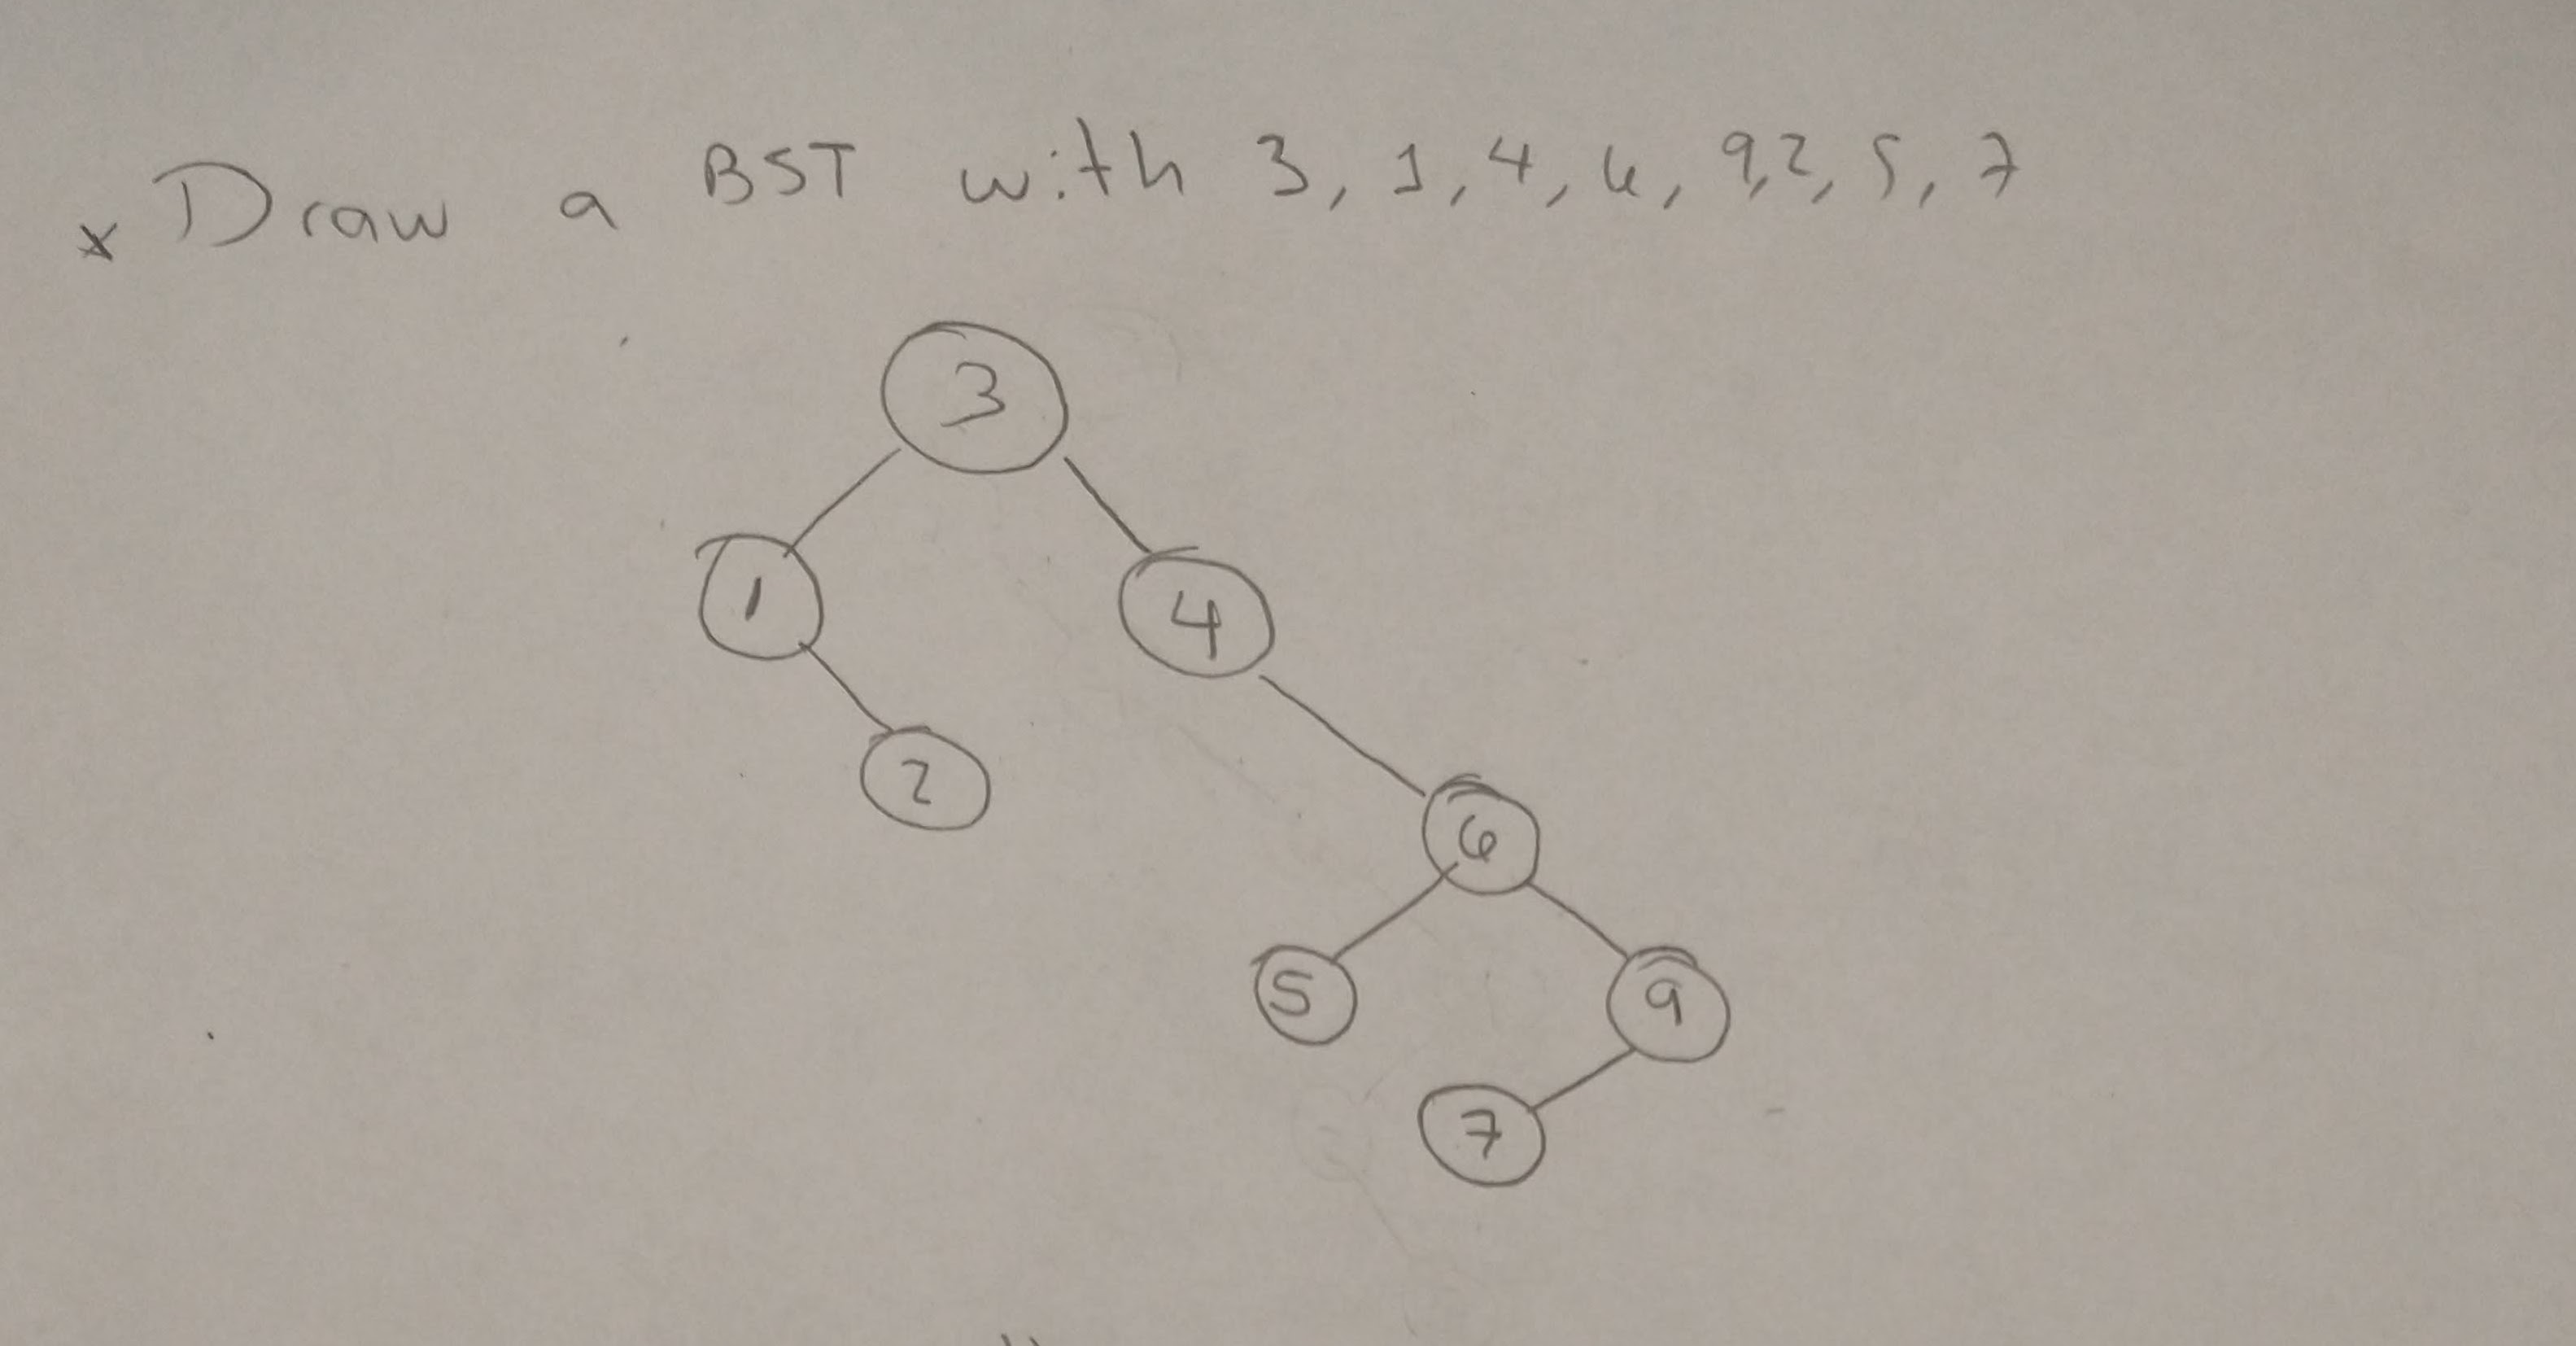 * Draw a BST with 3, 1, 4, 6, 9, 2, 5, 7
3
1 4
2
6
5 9
7